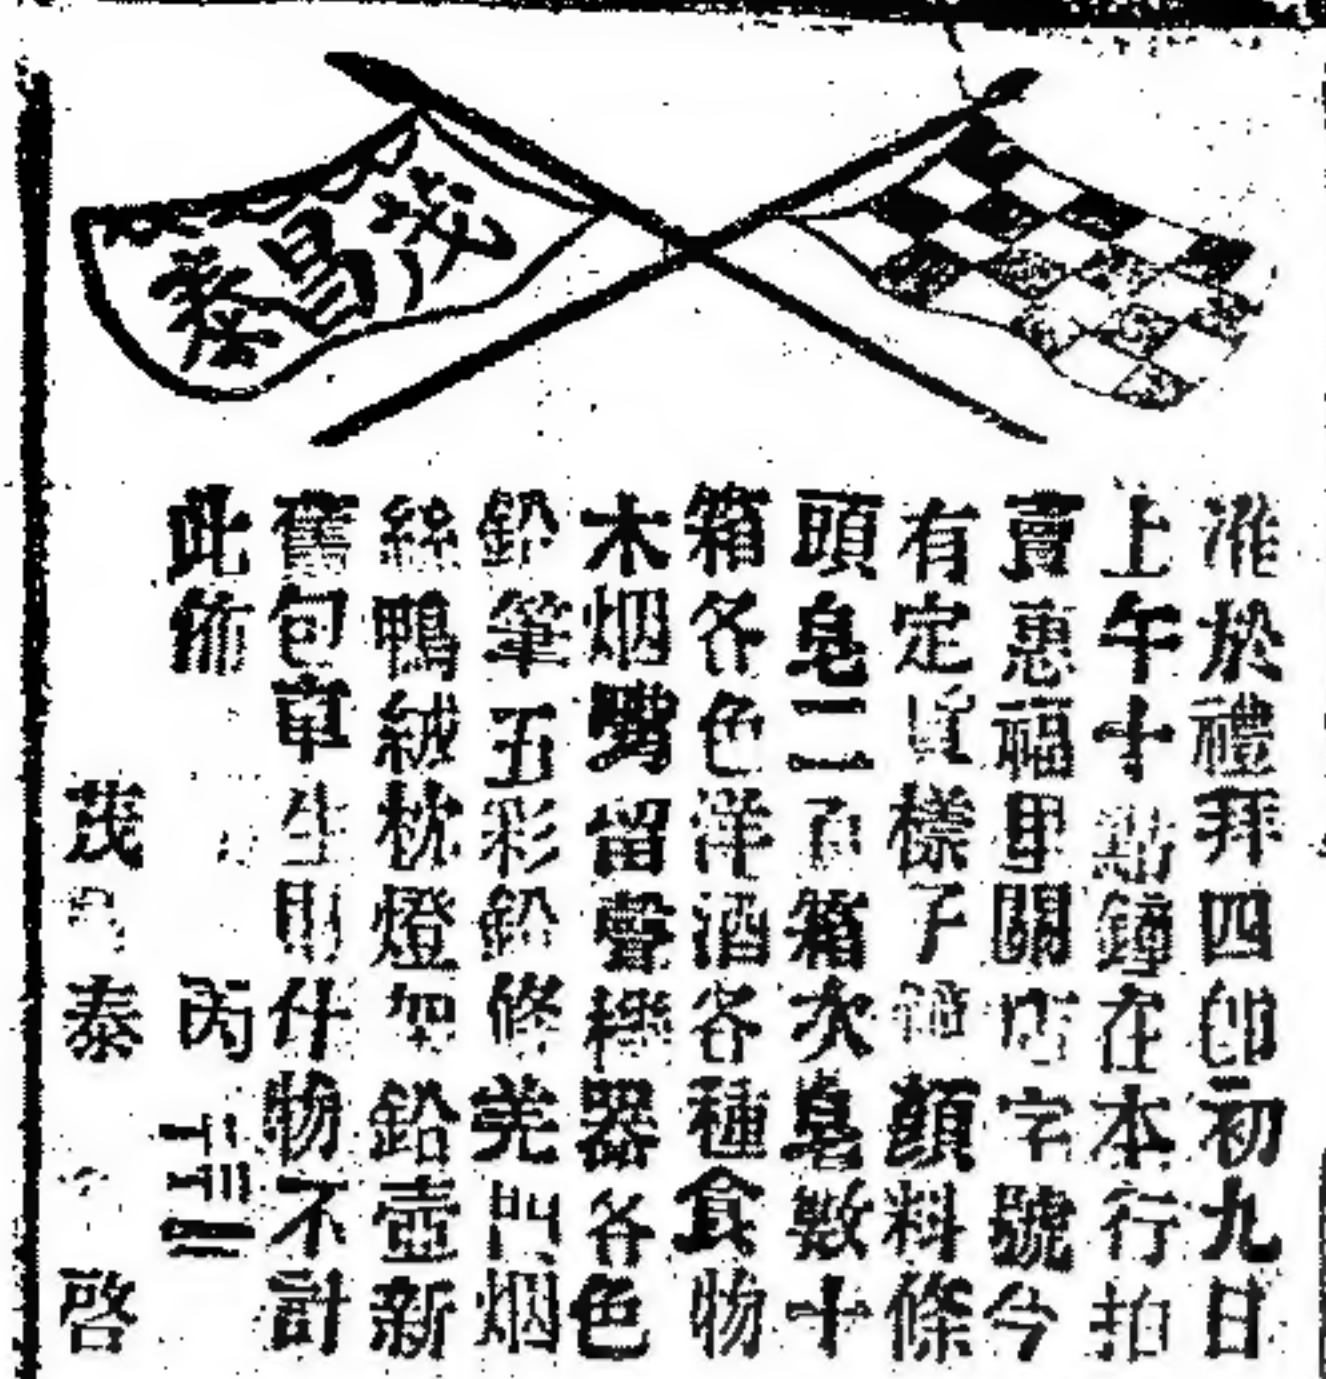 茂昌泰
准於禮拜四即初九日
上午十點鐘在本行拍
賣惠福里開店字號今
有定貨樣子箱顏料條
頭皂二百箱次皂數十
箱各色洋酒各種食物
木烟嘴留聲機器各色
鉛筆五彩鉛條羌門烟
絲鴨絨枕燈架鉛壺新
舊包車生財什物不計
此佈 丙
茂 泰 啓